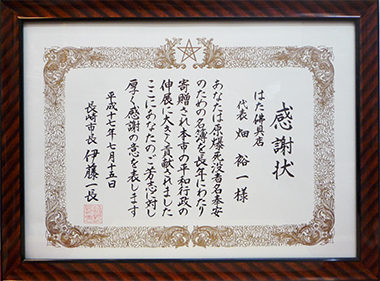 感謝状
はた佛具店
代表 畑 裕一 様
あなたは原爆死没者名奉安
のための名簿を長年にわたり
寄贈され本市の平和行政の
伸展に大きく貢献されました
ここにあなたのご芳志に対し
厚く感謝の意を表します
平成十七年七月十五日
長崎市長 伊藤一長